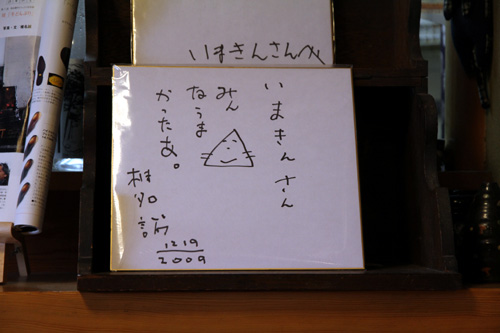 いまきんさんへ
いまきんさん
みん
なうま
かったあ。
椎名誠
12 19
2009